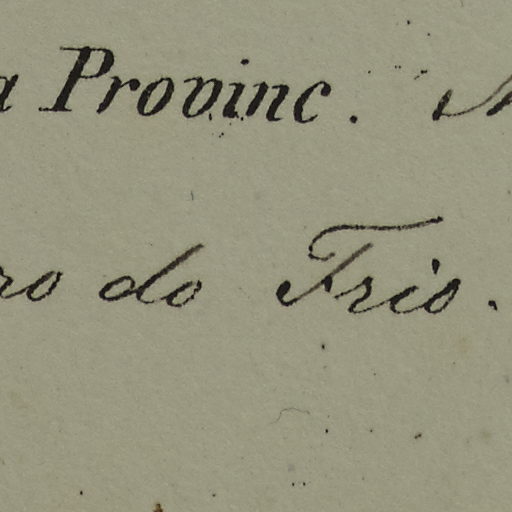 a Provinc.
ro do Frio.